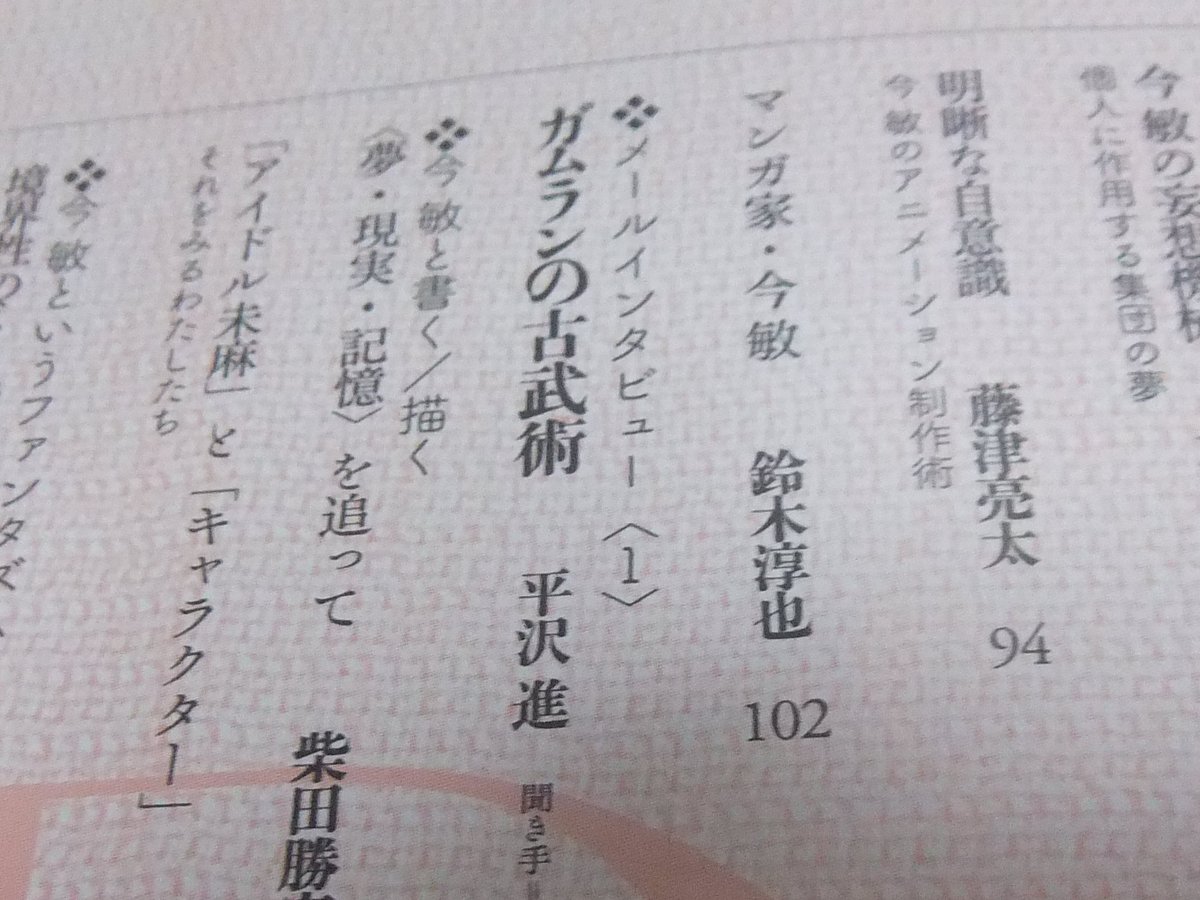 今 敏の妄想
個人に作用する集団の夢
明晰な自意識 藤津亮太 94
今 敏のアニメーション制作術
マンガ家・今 敏 鈴木淳也 102
❖メールインタビュー〈1〉
ガムランの古武術 平沢 進 聞き手=
❖今 敏と書く／描く
〈夢・現実・記憶〉を追って 柴田勝
「アイドル未麻」と「キャラクター」
それをみるわたしたち
❖今 敏というファンタズ
境界性の